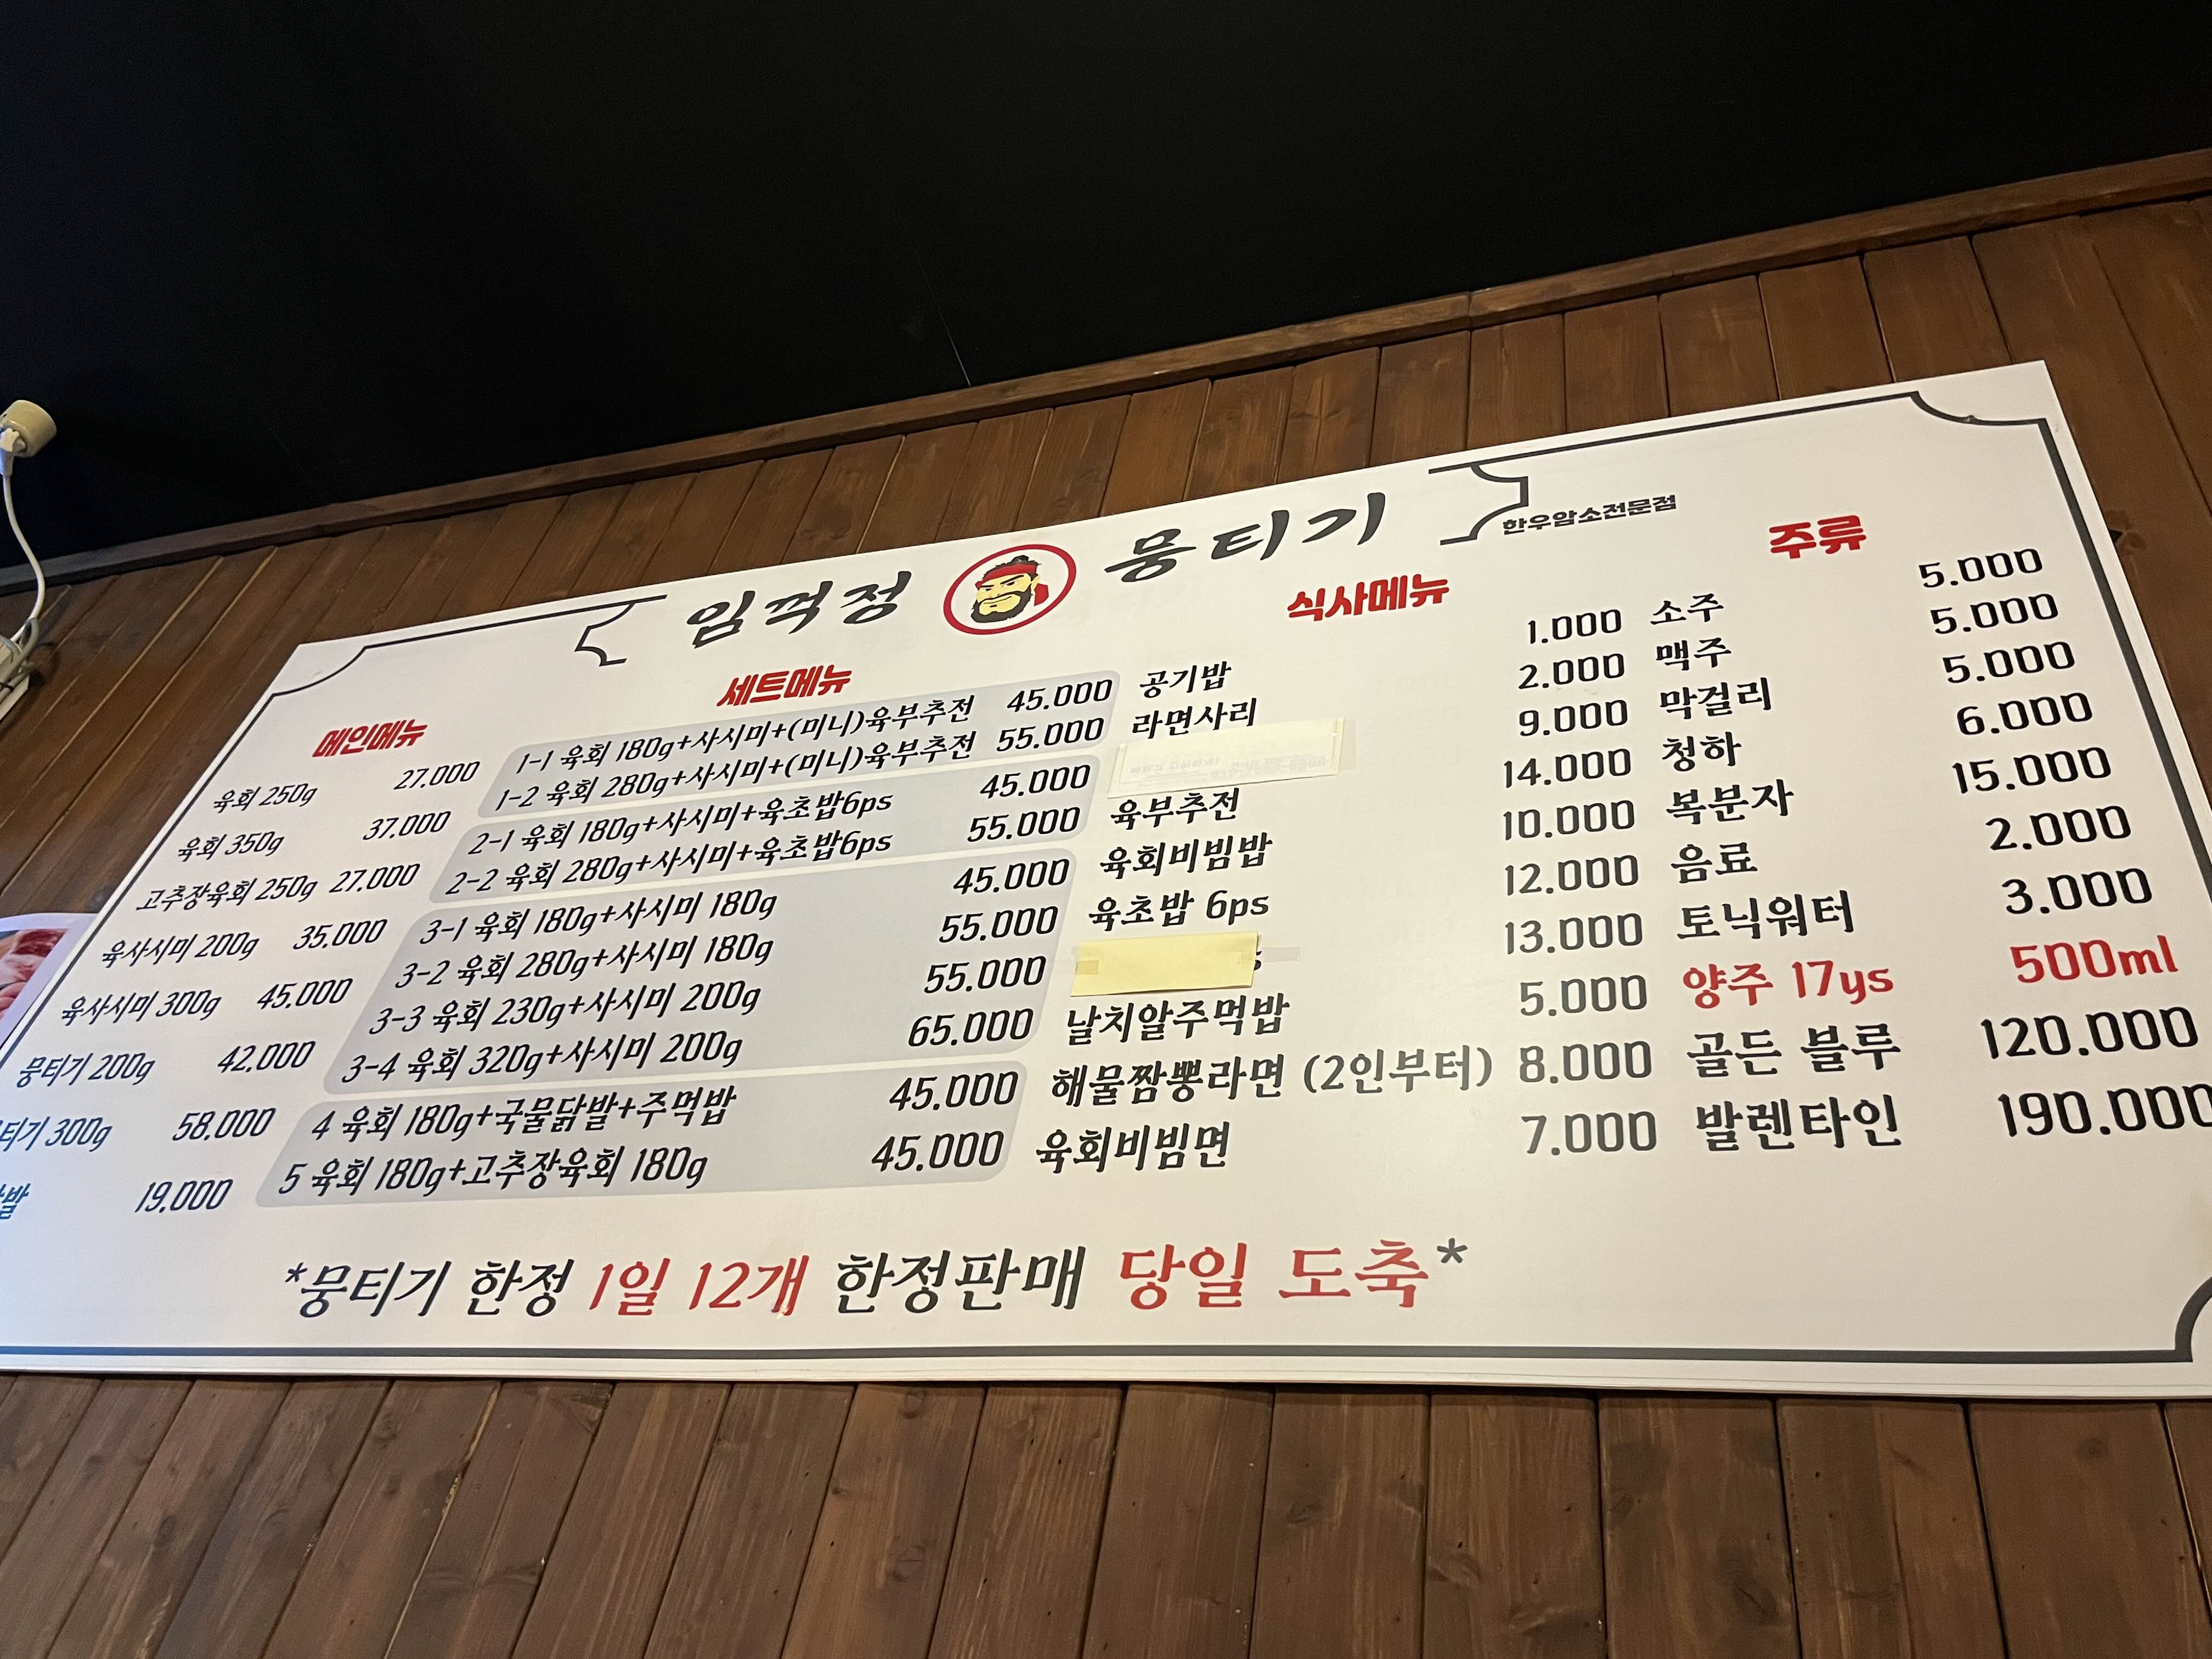 임꺽정 뭉티기
한우암소전문점
메인메뉴
육회 250g 27.000
육회 350g 37.000
고추장육회 250g 27.000
육사시미 200g 35.000
육사시미 300g 45.000
뭉티기 200g 42.000
티기 300g 58.000
발 19.000
세트메뉴
1-1 육회 180g+사시미+(미니)육부추전 45.000
1-2 육회 280g+사시미+(미니)육부추전 55.000
2-1 육회 180g+사시미+육초밥6ps 45.000
2-2 육회 280g+사시미+육초밥6ps 55.000
3-1 육회 180g+사시미 180g 45.000
3-2 육회 280g+사시미 180g 55.000
3-3 육회 230g+사시미 200g 55.000
3-4 육회 320g+사시미 200g 65.000
4 육회 180g+국물닭발+주먹밥 45.000
5 육회 180g+고추장육회 180g 45.000
식사메뉴
공기밥 1.000
라면사리 2.000
9.000
육부추전 14.000
육회비빔밥 10.000
육초밥 6ps 12.000
13.000
날치알주먹밥 5.000
해물짬뽕라면 (2인부터) 8.000
육회비빔면 7.000
주류
소주 5.000
맥주 5.000
막걸리 5.000
청하 6.000
복분자 15.000
음료 2.000
토닉워터 3.000
양주 17ys 500ml
골든 블루 120.000
발렌타인 190.000
*뭉티기 한정 1일 12개 한정판매 당일 도축*